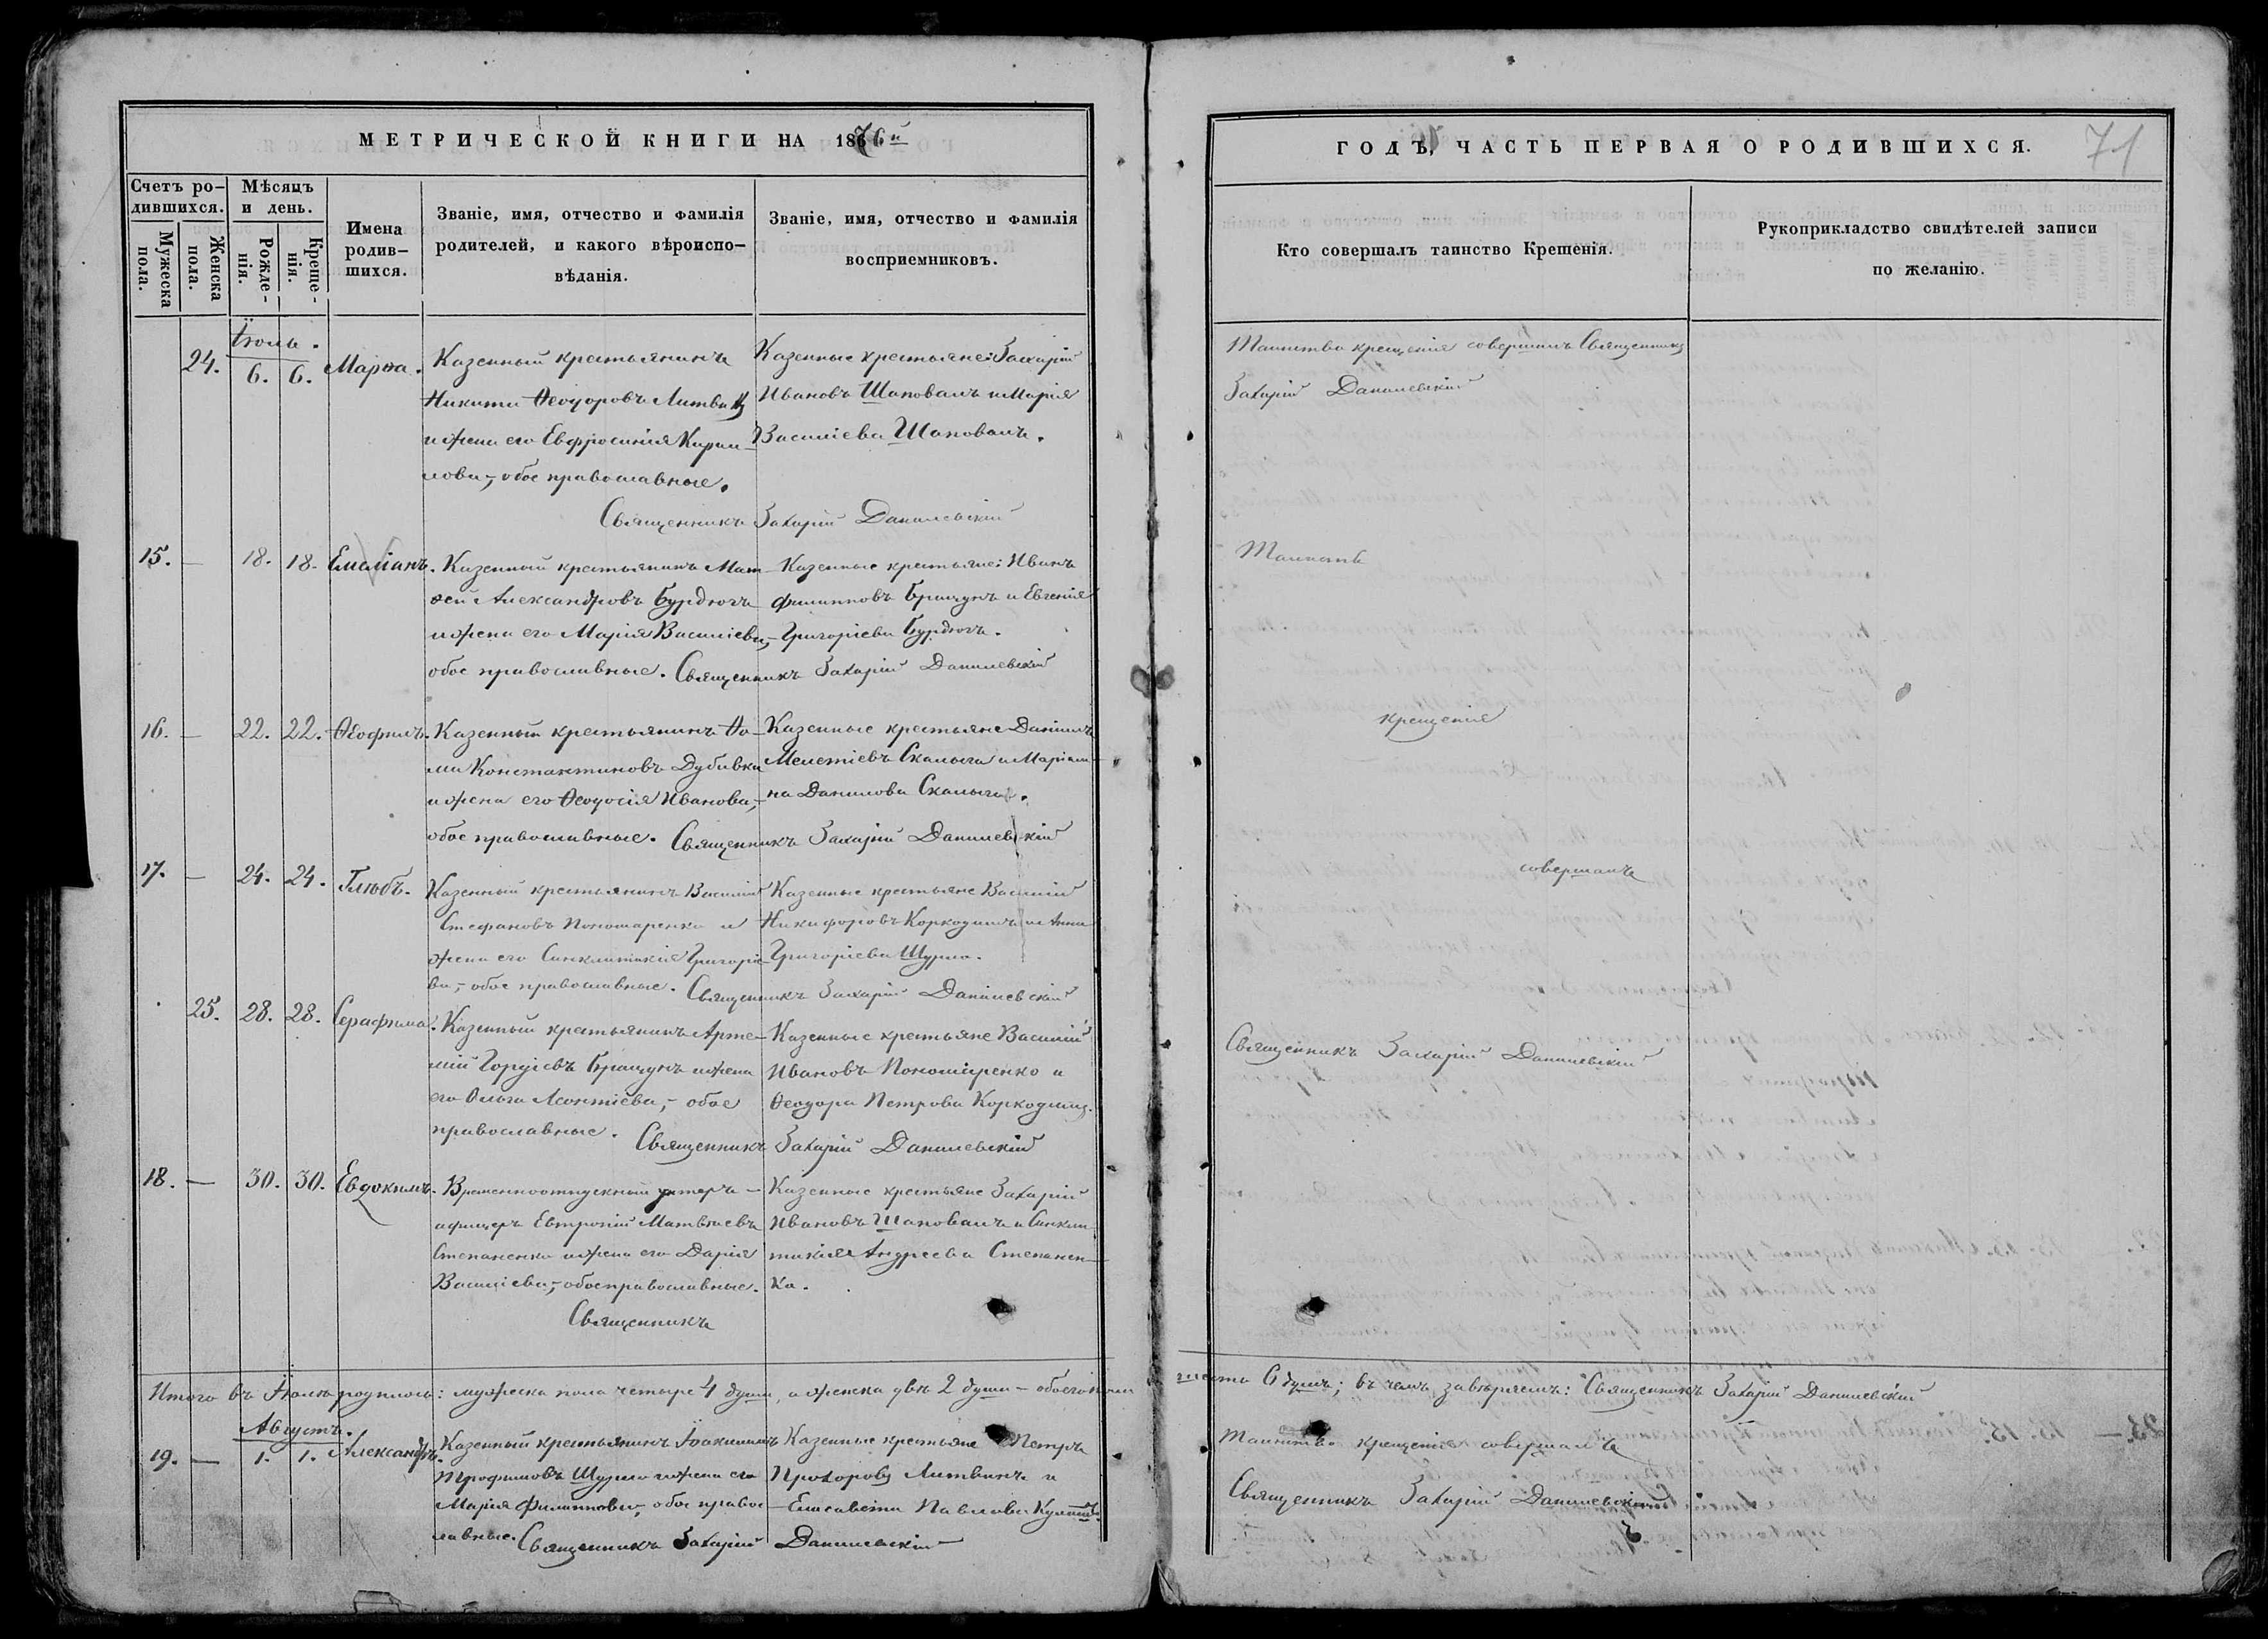 МЕТРИЧЕСКОЙ КНИГИ НА 1876й
ГОДЪ, ЧАСТЬ ПЕРВАЯ О РОДИВШИХСЯ.
71
Счетъ ро-
дившихся.
Мужеска пола.
Женска пола.
Мѣсяцъ
и день.
Рожде-
нія.
Креще-
нія.
Имена
родив-
шихся.
Званіе, имя, отчество и фамилія
родителей, и какого вѣроиспо-
вѣданія.
Званіе, имя, отчество и фамилія
воспріемниковъ.
Кто совершалъ таинство Крещенія.
Рукоприкладство свидѣтелей записи
по желанію.
Іюль.
24. 6. 6. Марѳа.
Казенный крестьянинъ
Никита Ѳеодоровъ Литвин
и жена его Евфросинія Кирил-
лова, обое православные.
Казенные крестьяне: Захарій
Ивановъ Шаповалъ и Марія
Василіева Шаповалъ.
Священникъ Захарій Данилевскій
Таинство крещенія совершилъ Священникъ
Захарій Данилевскій
15. — 18. 18. Емиліанъ.
Казенный крестьянинъ Мат-
ѳей Александровъ Бурдюгъ
и жена его Марія Василіева,
обое православные.
Казенные крестьяне: Иванъ
Филипповъ Брацунъ и Евгенія
Григоріева Бурдюгъ.
Священникъ Захарій Данилевскій
Таинство
16. — 22. 22. Ѳеофилъ.
Казенный крестьянинъ Ѳо-
ма Константиновъ Дубивка
и жена его Ѳеодосія Иванова,
обое православные.
Казенные крестьяне Даніилъ
Мелетіевъ Скалыга и Маріам-
на Данилова Скалыга.
Священникъ Захарій Данилевскій
крещенія
17. — 24. 24. Глѣбъ.
Казенный крестьянинъ Василій
Стефановъ Пономаренко и
жена его Синклитикія Григоріе-
ва, обое православные.
Казенные крестьяне Василій
Никифоровъ Коркодилъ и Анна
Григоріева Шурло.
Священникъ Захарій Данилевскій
совершалъ
25. 28. 28. Серафима.
Казенный крестьянинъ Арте-
мій Гордіевъ Брацунъ и жена
его Ольга Леонтіева, — обое
православные.
Казенные крестьяне Василій
Ивановъ Пономаренко и
Ѳеодора Петрова Коркодилъ.
Священникъ Захарій Данилевскій
Священникъ Захарій Данилевскій
18. — 30. 30. Евдокимъ.
Временноотпускный унтеръ-
афицеръ Евтропій Матвѣевъ
Степаненко и жена его Дарія
Василіева, обое православные.
Казенные крестьяне Захарій
Ивановъ Шаповалъ и Синкли-
тикія Андреева Степанен-
ко.
Священникъ
Итого въ Іюлѣ родилось: мужеска пола четыре 4 души, а женска двѣ 2 души — обоего пола
шесть 6 душъ; въ чемъ завѣряемъ: Священникъ Захарій Данилевскій
Августъ.
19. — 1. 1. Александръ.
Казенный крестьянинъ Іоакимъ
Трофимовъ Шурло и жена его
Марія Филиппова, обое правос-
лавные.
Казенные крестьяне Петръ
Прохоровъ Литвинъ и
Елисавета Павлова
Священникъ Захарій Данилевскій
Таинство крещенія совершалъ
Священникъ Захарій Данилевскій